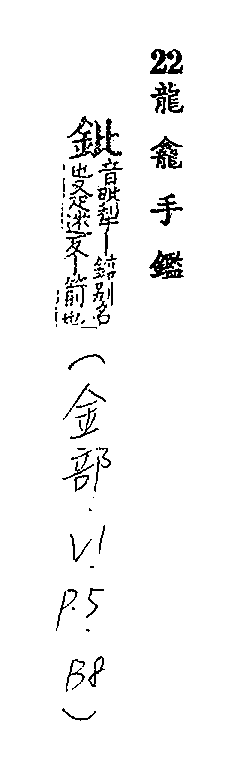 22龍龕手鑑
鈚音毗犁丨錯別名
也又疋迷反丨箭也
(金部.V1.P.5.B8)